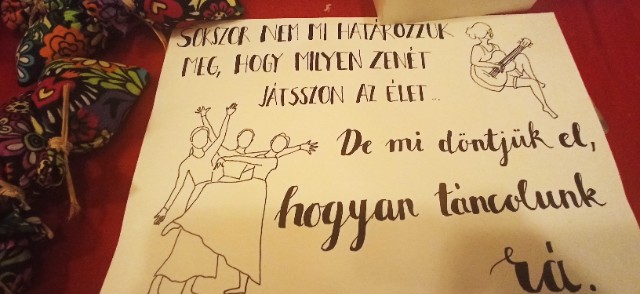 SOKSZOR NEM MI HATÁROZZUK
MEG, HOGY MILYEN ZENÉT
JÁTSSZON AZ ÉLET...
De mi döntjük el,
hogyan táncolunk
rá.